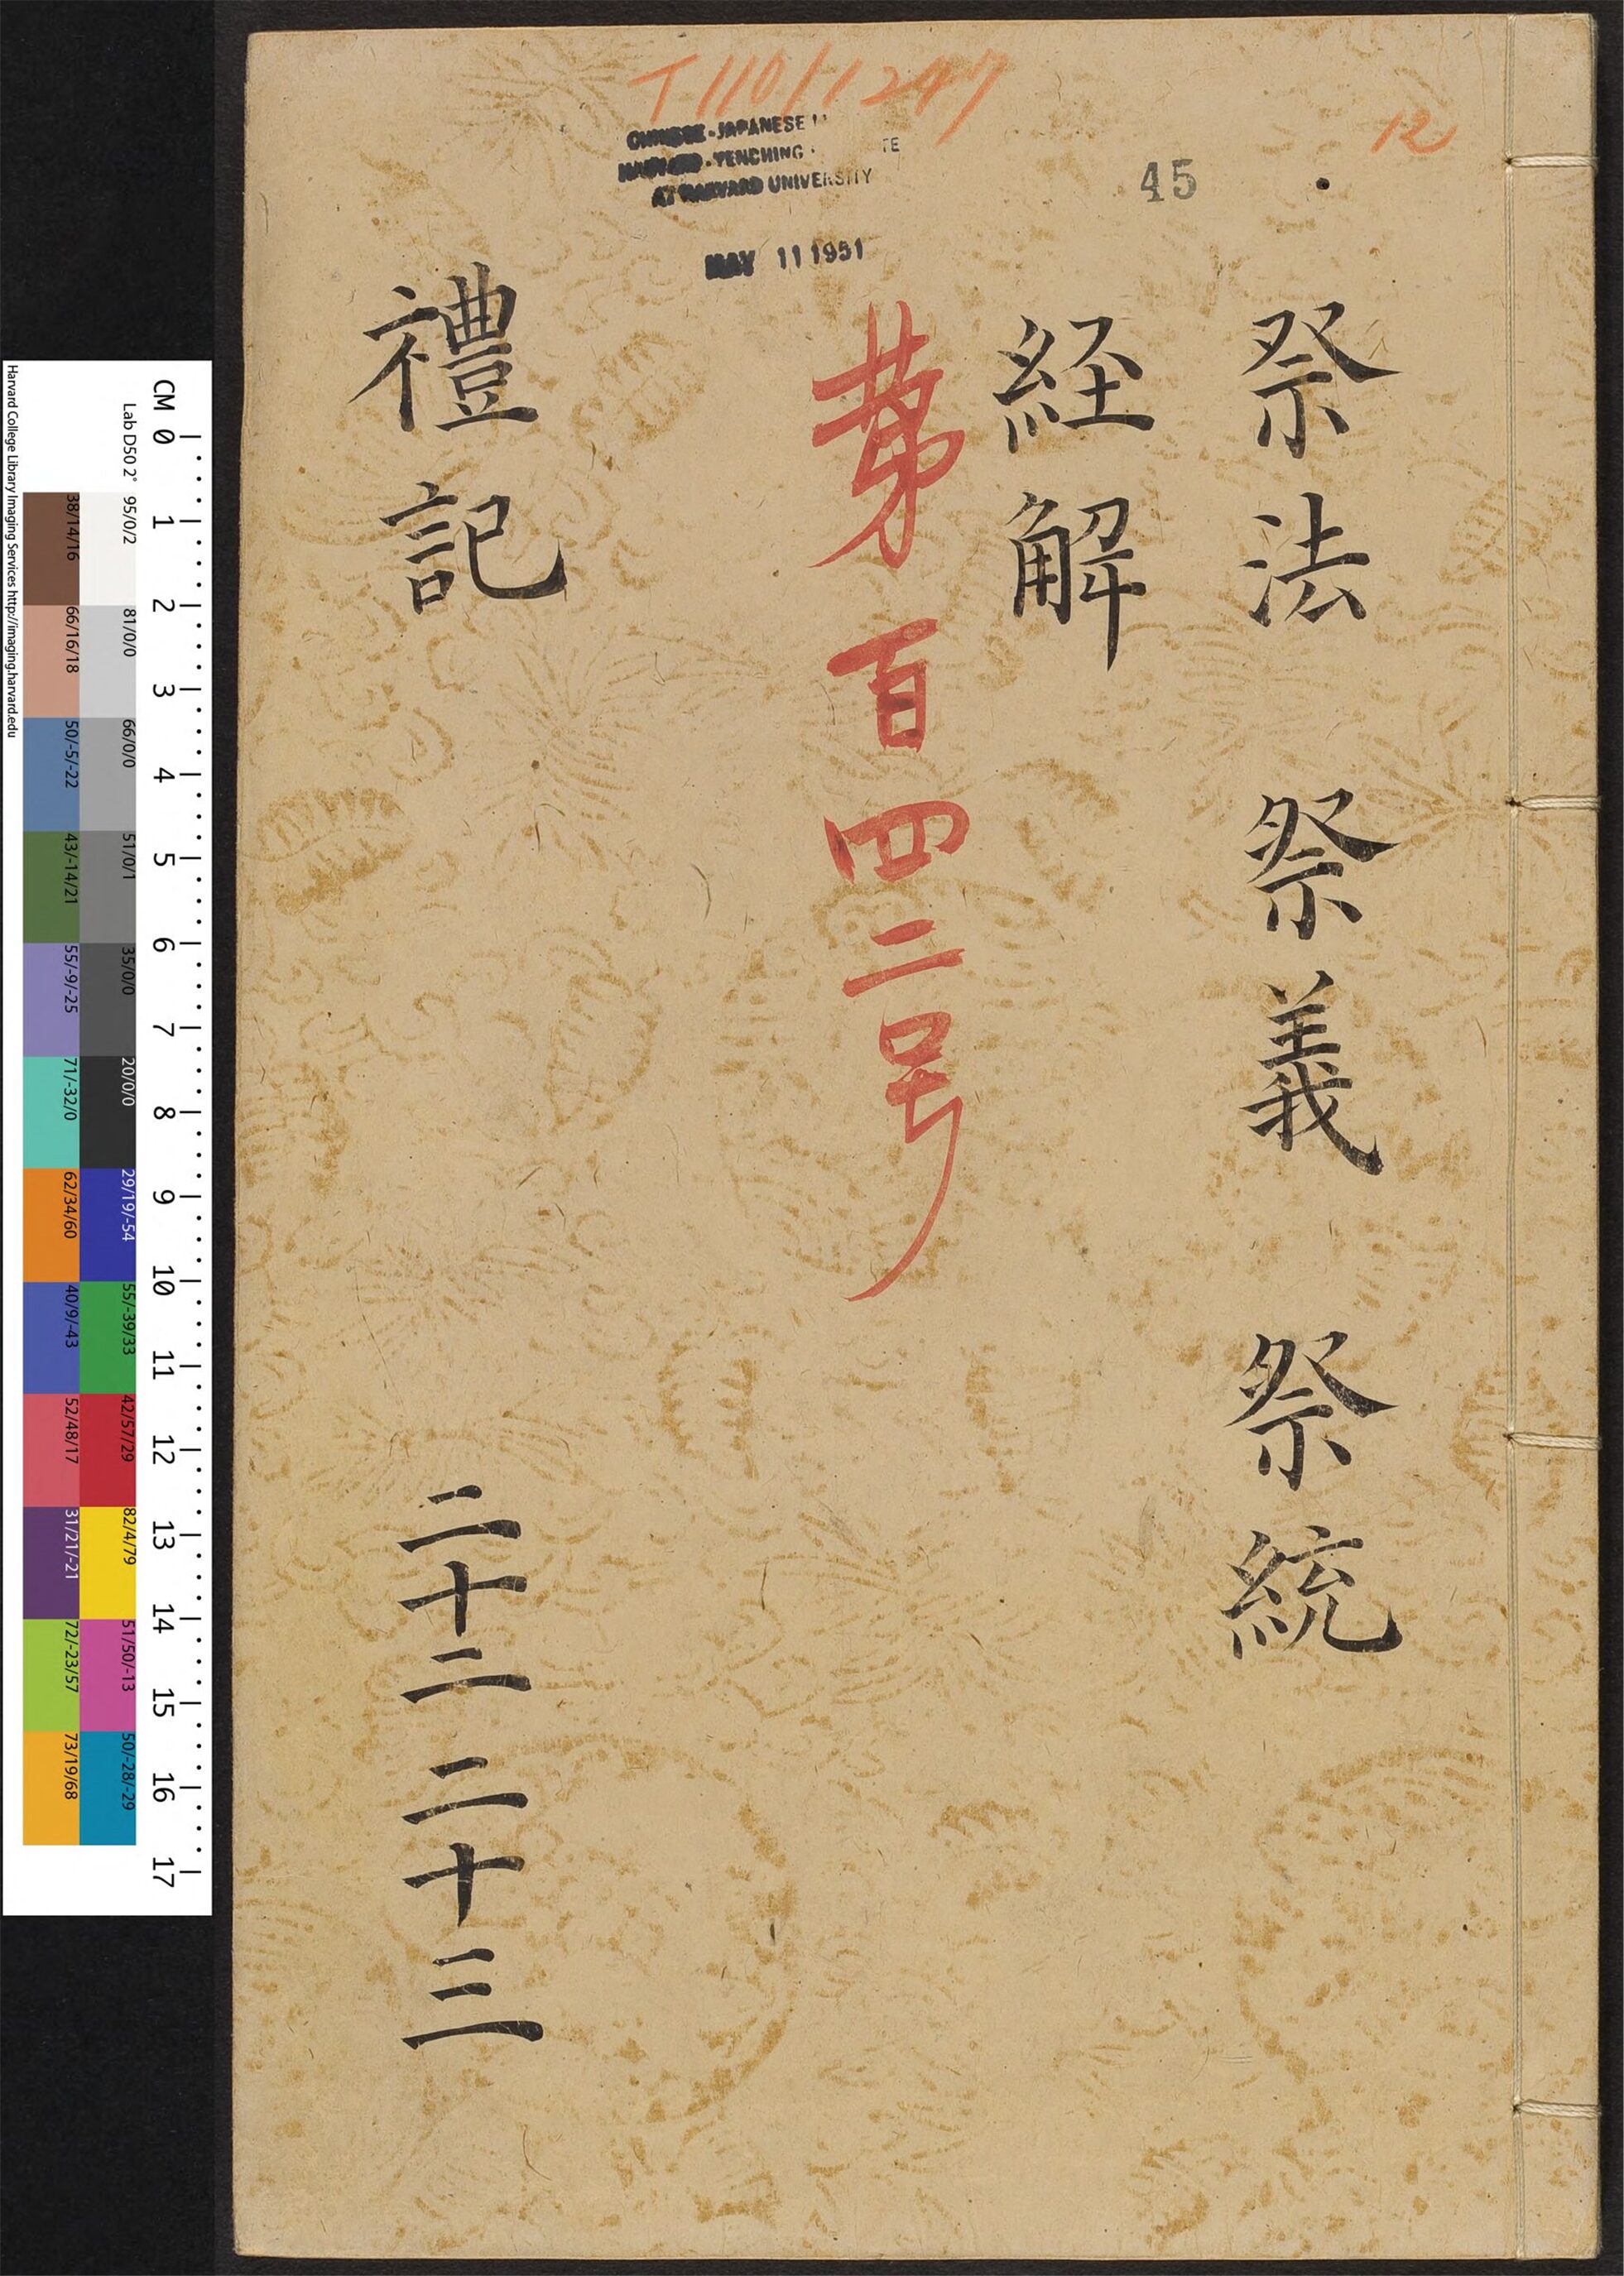 T 110/1247
12
CHINESE-JAPANESE
HARVARD-YENCHING TE
AT HARVARD UNIVERSITY
45
MAY 11 1951
祭法 祭義 祭統
経解
第百四二号
禮記 二十二 二十三
CM 0 1 2 3 4 5 6 7 8 9 10 11 12 13 14 15 16 17
Lab D50 2° 95/0/2 81/0/0 66/0/0 51/0/1 35/0/0 20/0/0 29/19/-54 55/-39/33 42/57/29 82/4/79 51/50/-13 50/-28/-29
38/14/16 66/16/18 50/-5/-22 43/-14/21 55/-9/-25 71/-32/0 62/34/60 40/9/-43 52/48/17 31/21/-21 72/-23/57 73/19/68
Harvard College Library Imaging Services http://imaging.harvard.edu